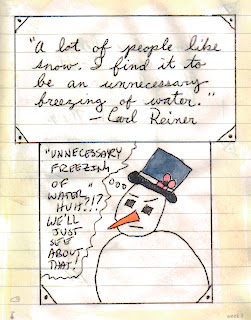 "A lot of people like
snow. I find it to
be an unnecessary
freezing of water."
- Carl Reiner
"UNNECESSARY
FREEZING
OF
WATER
HUH?!?
WE'LL
JUST
SEE
ABOUT
THAT!